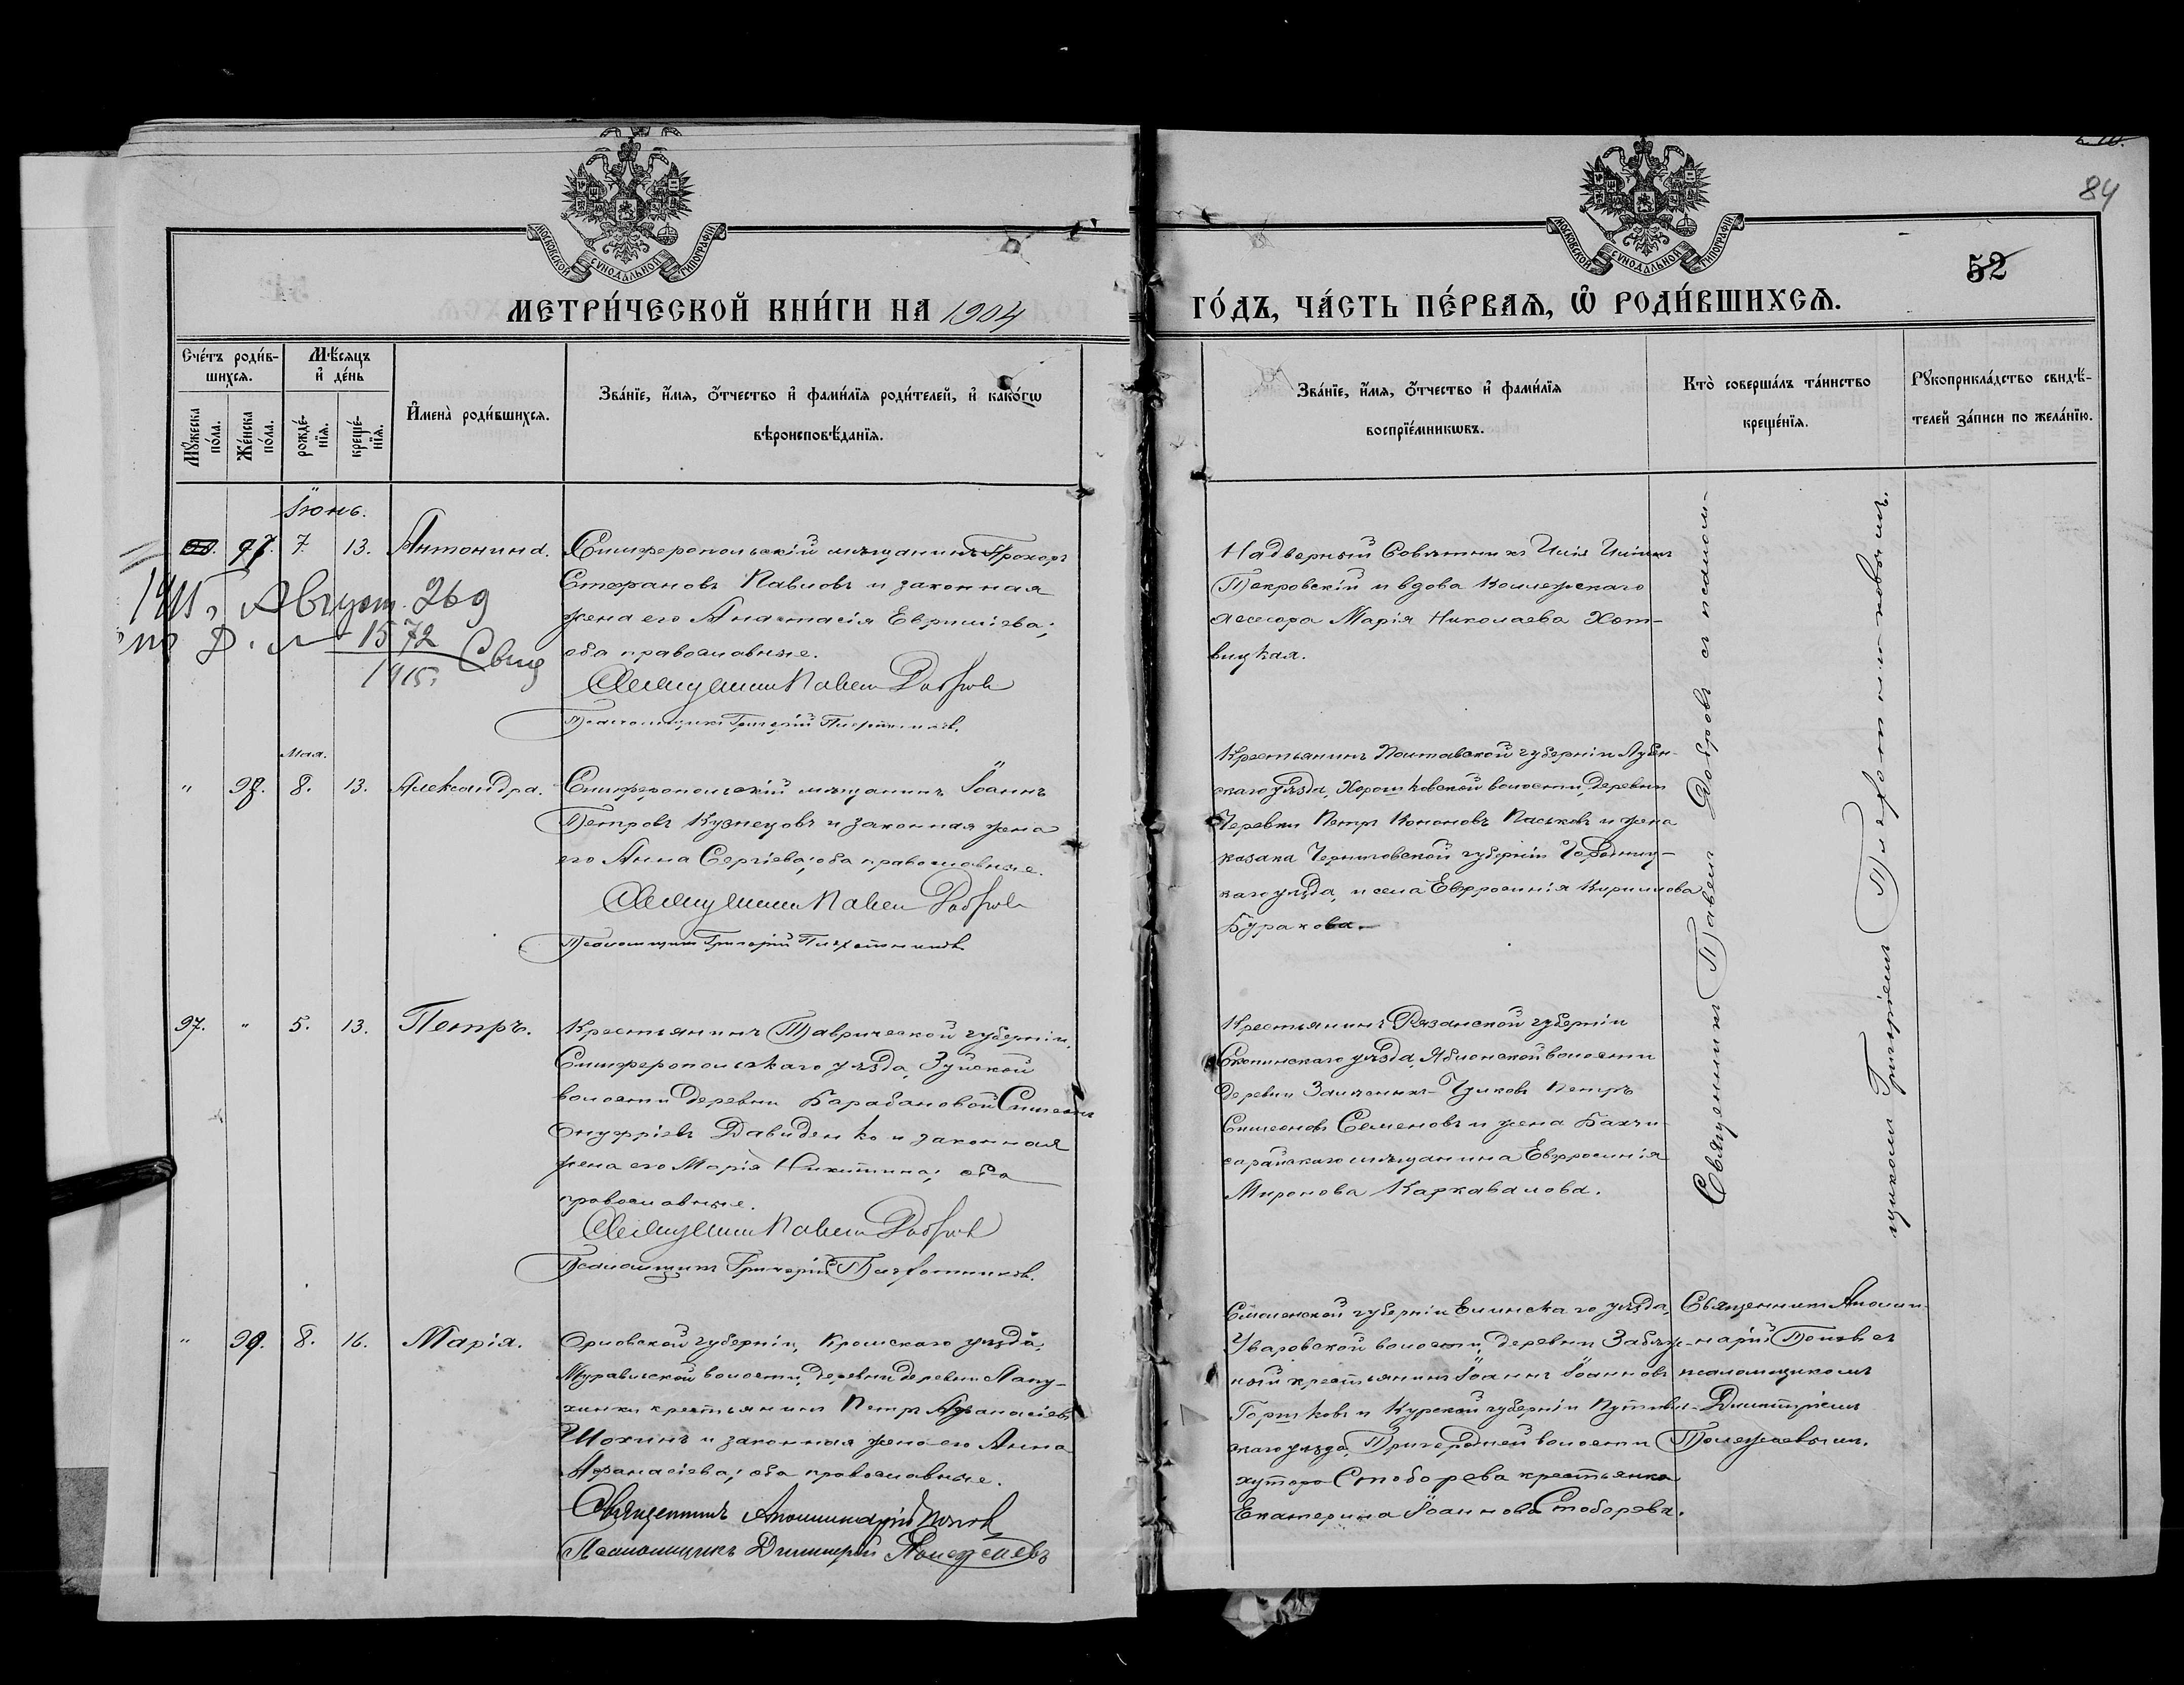 84
52
МОСКОВСКОЙ СѴНОДАЛЬНОЙ ТИПОГРАФІИ
МОСКОВСКОЙ СѴНОДАЛЬНОЙ ТИПОГРАФІИ
МЕТРИ́ЧЕСКОЙ КНИ́ГИ НА 1904
ГО́ДЪ, ЧА́СТЬ ПЕ́РВАЯ, Ѡ РОДИ́ВШИХСЯ.
Сче́тъ роди́в-
шихся.
Мѣ́сяцъ
и де́нь
Мꙋ́жеска
по́ла.
Же́нска
по́ла.
рожде́-
нїя.
креще́-
нїя.
Имена̀ роди́вшихся.
Зва́нїе, и́мя, о́тчество и фами́лїя роди́телей, и како́гѡ
вѣроисповѣ́данїя.
Зва́нїе, и́мя, о́тчество и фами́лїя
воспрїе́мникѡвъ.
Кто̀ соверша́лъ та́инство
креще́нїя.
Рꙋкоприкла́дство свидѣ́-
телей за́писи по жела́нїю.
Іюнь.
97. 7. 13. Антонина.
Симферопольскій мѣщанинъ Прохоръ
Стефановъ Павловъ и законная
жена его Анастасія Евфиміева;
оба православные.
Священникъ Павелъ Добровъ
Псаломщикъ Григорій Пѣхотинковъ.
Август. 26 д
1572
1915
Свид
Надворный Совѣтникъ Илія Иліинъ
Покровскій и вдова Коллежскаго
Асессора Марія Николаева Хот-
вицкая.
Мая.
" 98. 8. 13. Александра.
Симферопольскій мѣщанинъ Іоаннъ
Петровъ Кузнецовъ и законная жена
его Анна Сергіева; оба православные.
Священникъ Павелъ Добровъ
Псаломщикъ Григорій Пѣхотинковъ
Крестьянинъ Полтавской губерніи Лубен-
скаго уѣзда, Хорошковской волости, деревни
Черевки Петръ Кононовъ Паськовъ и жена
казака Черниговской губерніи Городниц-
каго уѣзда, и села Евфросинія Кириллова
Буракова.
97. " 5. 13. Петръ.
Крестьянинъ Таврической губерніи,
Симферопольскаго уѣзда, Зуйской
волости деревни Барабановой Симеонъ
Онуфріевъ Давиденко и законная
жена его Марія Никитина; оба
православные.
Священникъ Павелъ Добровъ
Псаломщикъ Григорій Пѣхотинковъ.
Крестьянинъ Рязанской губерніи
Скопинскаго уѣзда, Яблонской волости
деревни Чуликовъ Петръ
Симеоновъ Семеновъ и жена Бахчи-
сарайскаго мѣщанина Евфросинія
Миронова Каркавалова.
Священникъ Павелъ Добровъ съ псалом-
щикомъ Григоріемъ Пѣхотинковымъ.
" 99. 8. 16. Марія.
Орловской губерніи, Кромскаго уѣзда,
Муравльской волости, деревни деревни Лапу-
хинки крестьянинъ Петръ Афанасіевъ
Шохинъ и законная жена его Анна
Афанасіева; оба православные.
Священникъ Аполлинарій Поповъ
Псаломщикъ Димитрій Полежаевъ
Смоленской губерніи Елинскаго уѣзда,
Уваровской волости, деревни
крестьянинъ Іоаннъ Іоанновъ
Горшковъ и Курской губерніи Путивль-
скаго уѣзда, Пригородней волости
хутора Стоборева крестьянка
Екатерина Іоаннова Стоборева.
Священникъ Аполли-
нарій Поповъ съ
псаломщикомъ
Димитріемъ
Полежаевымъ.